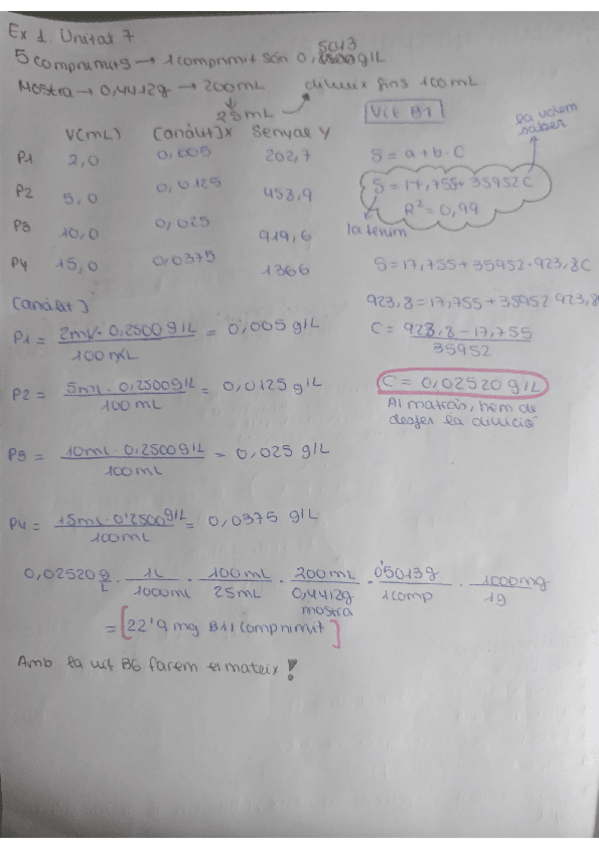 Ex 1. Unitat 7
5 comprimits → 1 comprimit són 0,5013 g/L
Mostra → 0,4412g → 200mL
↓
25mL → diluïx fins 100mL
Vit B1
la volem saber
V(mL) [anàlit] x Senyal y
P1 2,0 0,005 202,7
P2 5,0 0,0125 458,9
P3 10,0 0,025 919,6
P4 15,0 0,0375 1366
S = a + b · C
S = 17,755 + 35952 C
R² = 0,99
la tenim
S = 17,755 + 35952 · 923,8C
923,8 = 17,755 + 35952 · 923,8
C = 923,8 - 17,755 / 35952
C = 0,02520 g/L
Al matràs, hem de
desfer la dilució
[anàlit]
P1 = 2mL · 0,2500 g/L / 100mL = 0,005 g/L
P2 = 5mL · 0,2500 g/L / 100mL = 0,0125 g/L
P3 = 10mL · 0,2500 g/L / 100mL = 0,025 g/L
P4 = 15mL · 0'2500 g/L / 100mL = 0,0375 g/L
0,02520 g/L · 1L/1000mL · 100mL/25mL · 200mL/0,4412g mostra · 0'5013g/1comp · 1000mg/1g
= [22'9 mg B1/1 comprimit]
Amb la vit B6 farem el mateix!